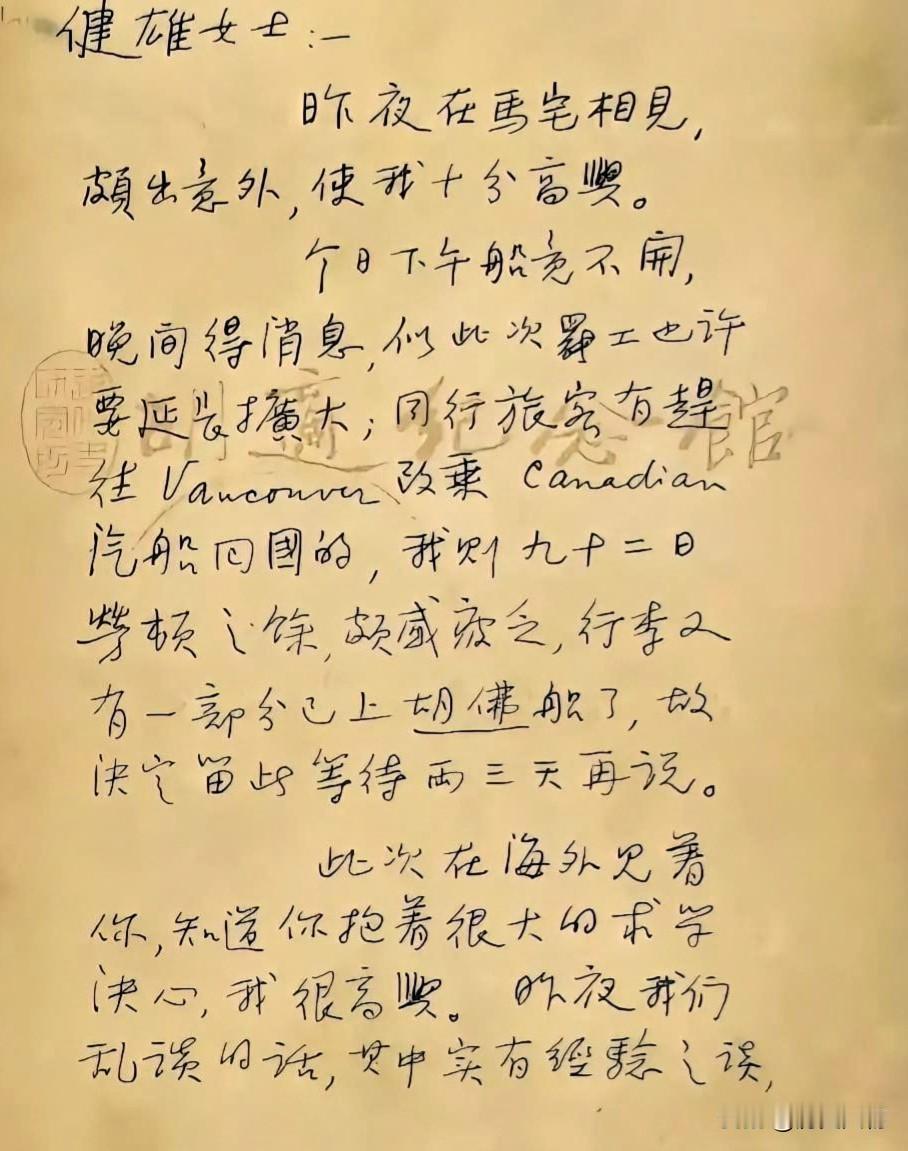 健雄女士：—
昨夜在馬宅相見，
頗出意外，使我十分高興。
今日下午船竟不開，
晚间得消息，似此次罷工也许
要延長擴大；同行旅客有趕
往 Vancouver 改乘 Canadian
汽船回國的，我则九十二日
勞頓之馀，頗感疲乏，行李又
有一部分已上胡佛船了，故
決定留此等待兩三天再说。
此次在海外见着
你，知道你抱着很大的求学
決心，我很高興。昨夜我们
乱谈的话，其中实有經驗之谈，
纪念館